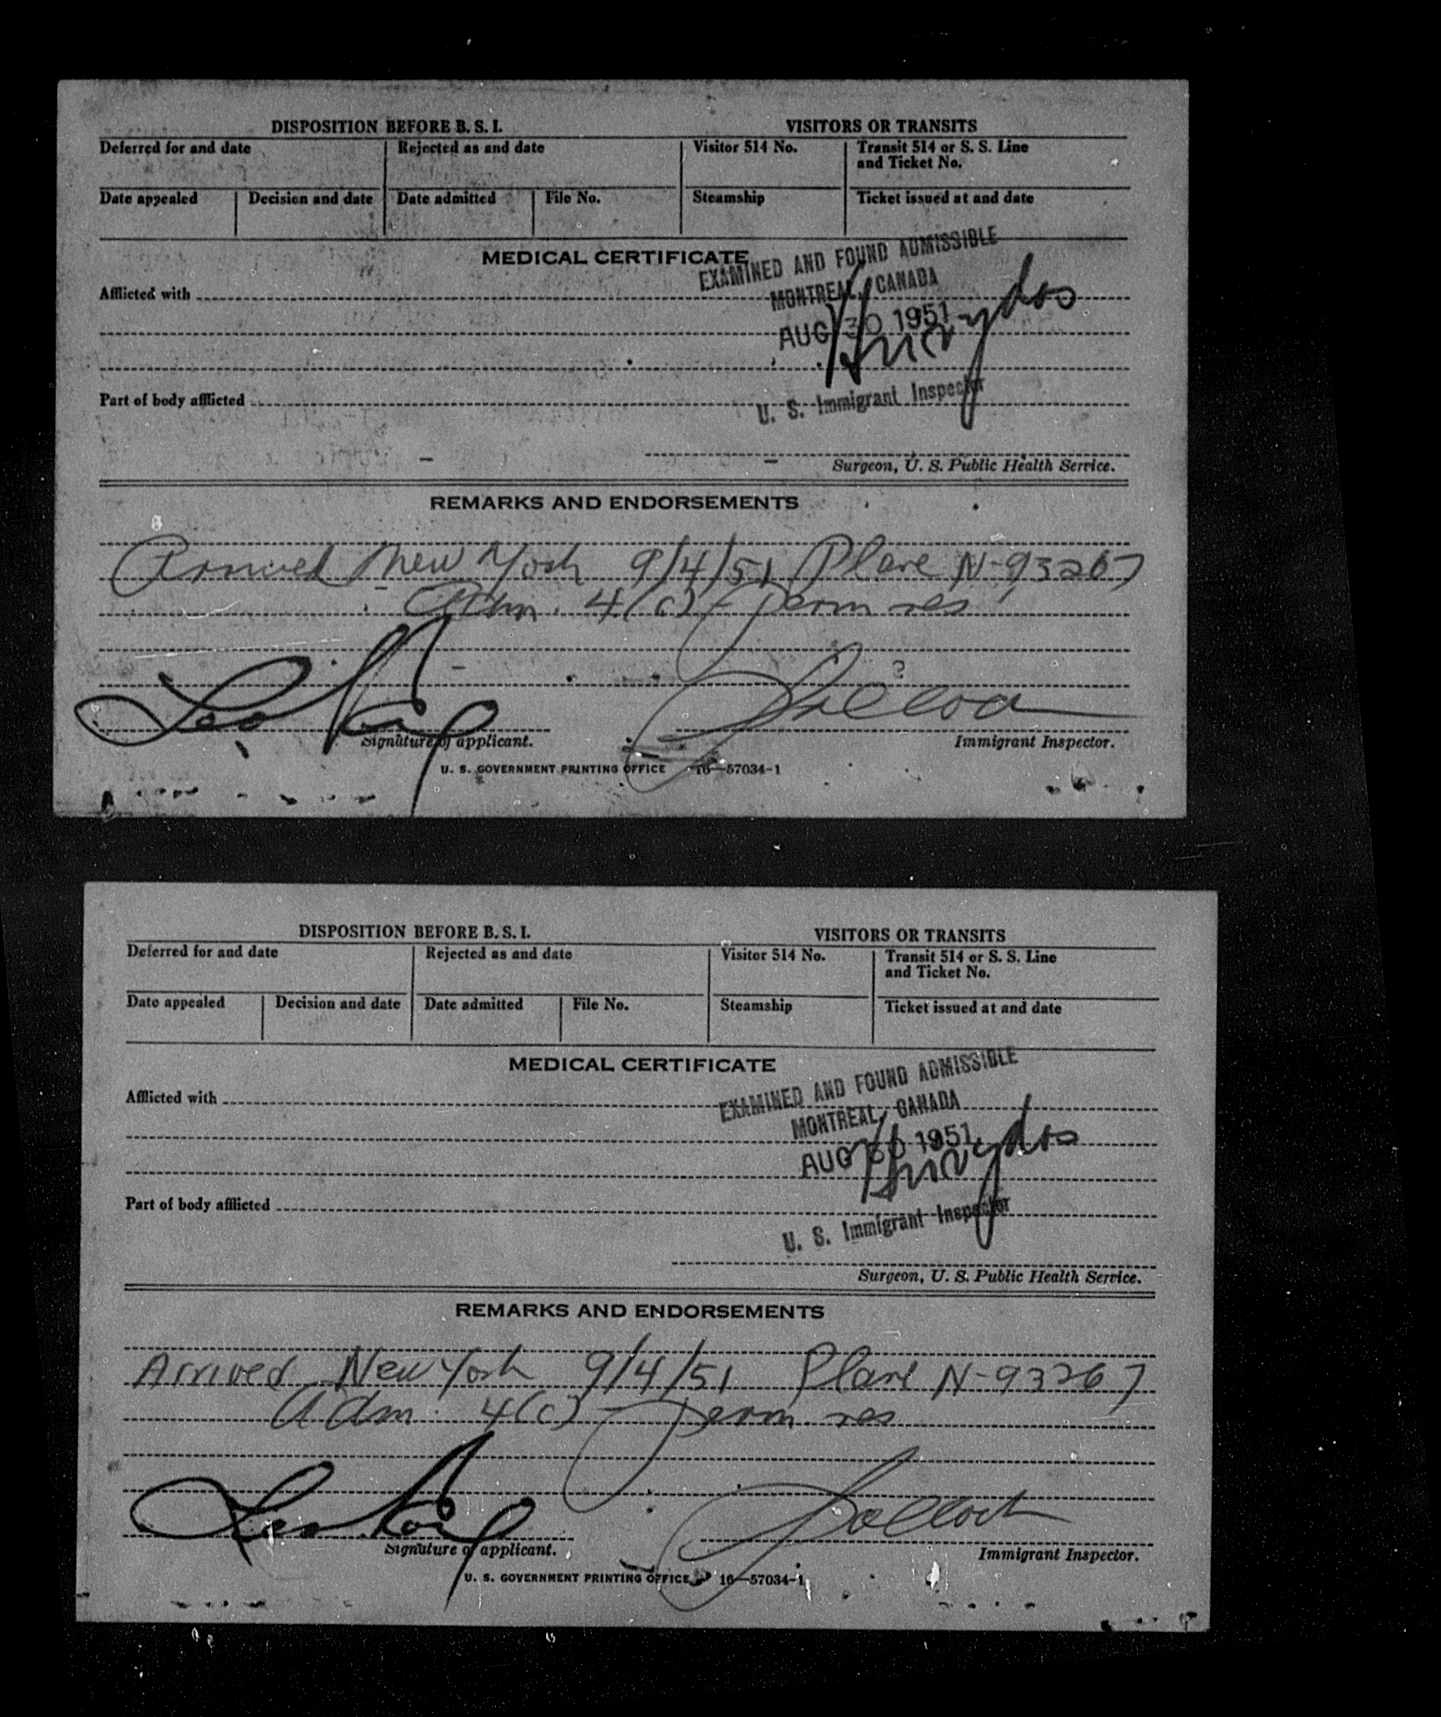 DISPOSITION BEFORE B. S. I.
VISITORS OR TRANSITS
Deferred for and date
Rejected as and date
Visitor 514 No.
Transit 514 or S. S. Line
and Ticket No.
Date appealed
Decision and date
Date admitted
File No.
Steamship
Ticket issued at and date
MEDICAL CERTIFICATE
EXAMINED AND FOUND ADMISSIBLE
MONTREAL, CANADA
Afflicted with
AUG 30 1951
Part of body afflicted
U. S. Immigrant Inspector
Surgeon, U. S. Public Health Service.
REMARKS AND ENDORSEMENTS
Arrived New York 9/4/51 Plane N-93267
Adm. 4(c) - Perm res
Leo
Signature of applicant.
Immigrant Inspector.
U. S. GOVERNMENT PRINTING OFFICE 16—57034-1
DISPOSITION BEFORE B. S. I.
VISITORS OR TRANSITS
Deferred for and date
Rejected as and date
Visitor 514 No.
Transit 514 or S. S. Line
and Ticket No.
Date appealed
Decision and date
Date admitted
File No.
Steamship
Ticket issued at and date
MEDICAL CERTIFICATE
EXAMINED AND FOUND ADMISSIBLE
Afflicted with
MONTREAL, CANADA
AUG 30 1951
Part of body afflicted
U. S. Immigrant Inspector
Surgeon, U. S. Public Health Service.
REMARKS AND ENDORSEMENTS
Arrived New York 9/4/51 Plane N-93267
Adm. 4(c) - Perm res
Leo
Signature of applicant.
Immigrant Inspector.
U. S. GOVERNMENT PRINTING OFFICE 16—57034-1